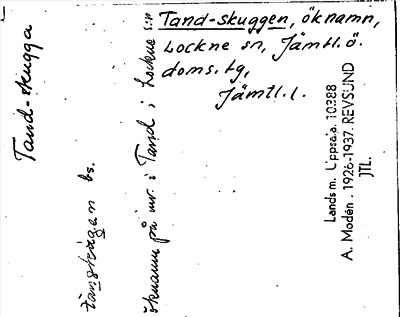 Tand-skuggen, öknamn,
Lockne sn, Jämtl. ö.
doms. tg,
Jämtl. l.
Tand-skugga
bs.
öknamn på inv. i Tand i Lockne s:n
Landsm. Uppsala 10388
A. Modén. 1926-1937. REVSUND
JTL.